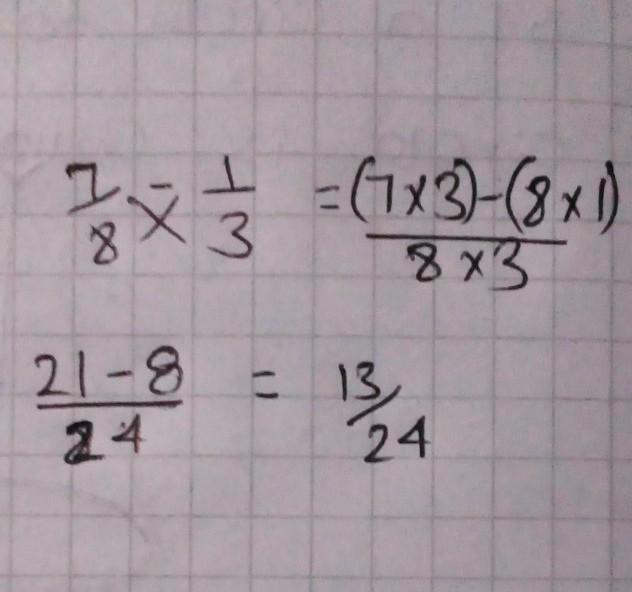 7/8 - × 1/3 = (7×3)-(8×1)/8×3
21-8/24 = 13/24